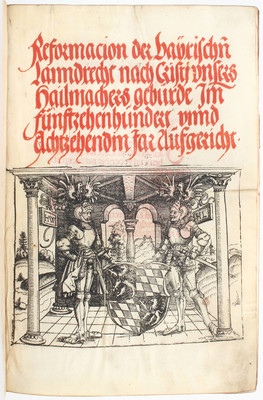 Reformacion der bayrischñ
Lanndrecht nach Cristj vnsers
Hailmachers geburde Jm
fünftzehenhundert vnnd
Achtzehendm Jar Aufgericht.